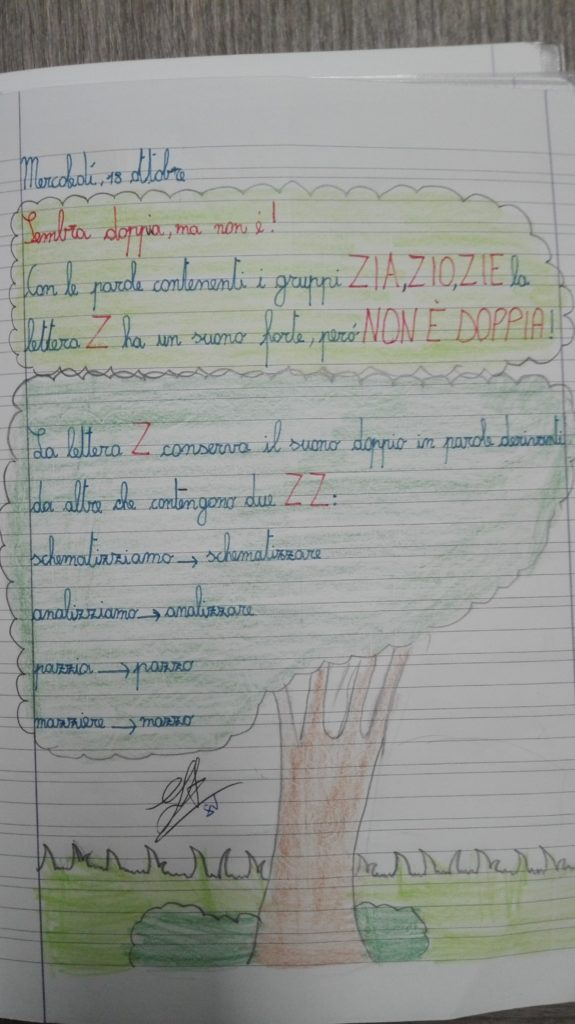 Mercoledí, 18 ottobre
Sembra doppia, ma non é!
Con le parole contenenti i gruppi ZIA, ZIO, ZIE la
lettera Z ha un suono forte, peró NON È DOPPIA!
La lettera Z conserva il suono doppio in parole derivanti
da altre che contengono due ZZ:
schematizziamo → schematizzare
analizziamo → analizzare
pazzia → pazzo
mazziere → mazzo